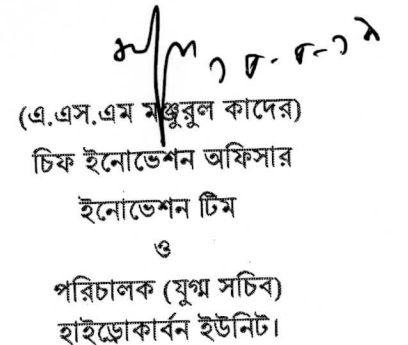 (এ.এস.এম মঞ্জুরুল কাদের)
চিফ ইনোভেশন অফিসার
ইনোভেশন টিম
ও
পরিচালক (যুগ্ম সচিব)
হাইড্রোকার্বন ইউনিট।